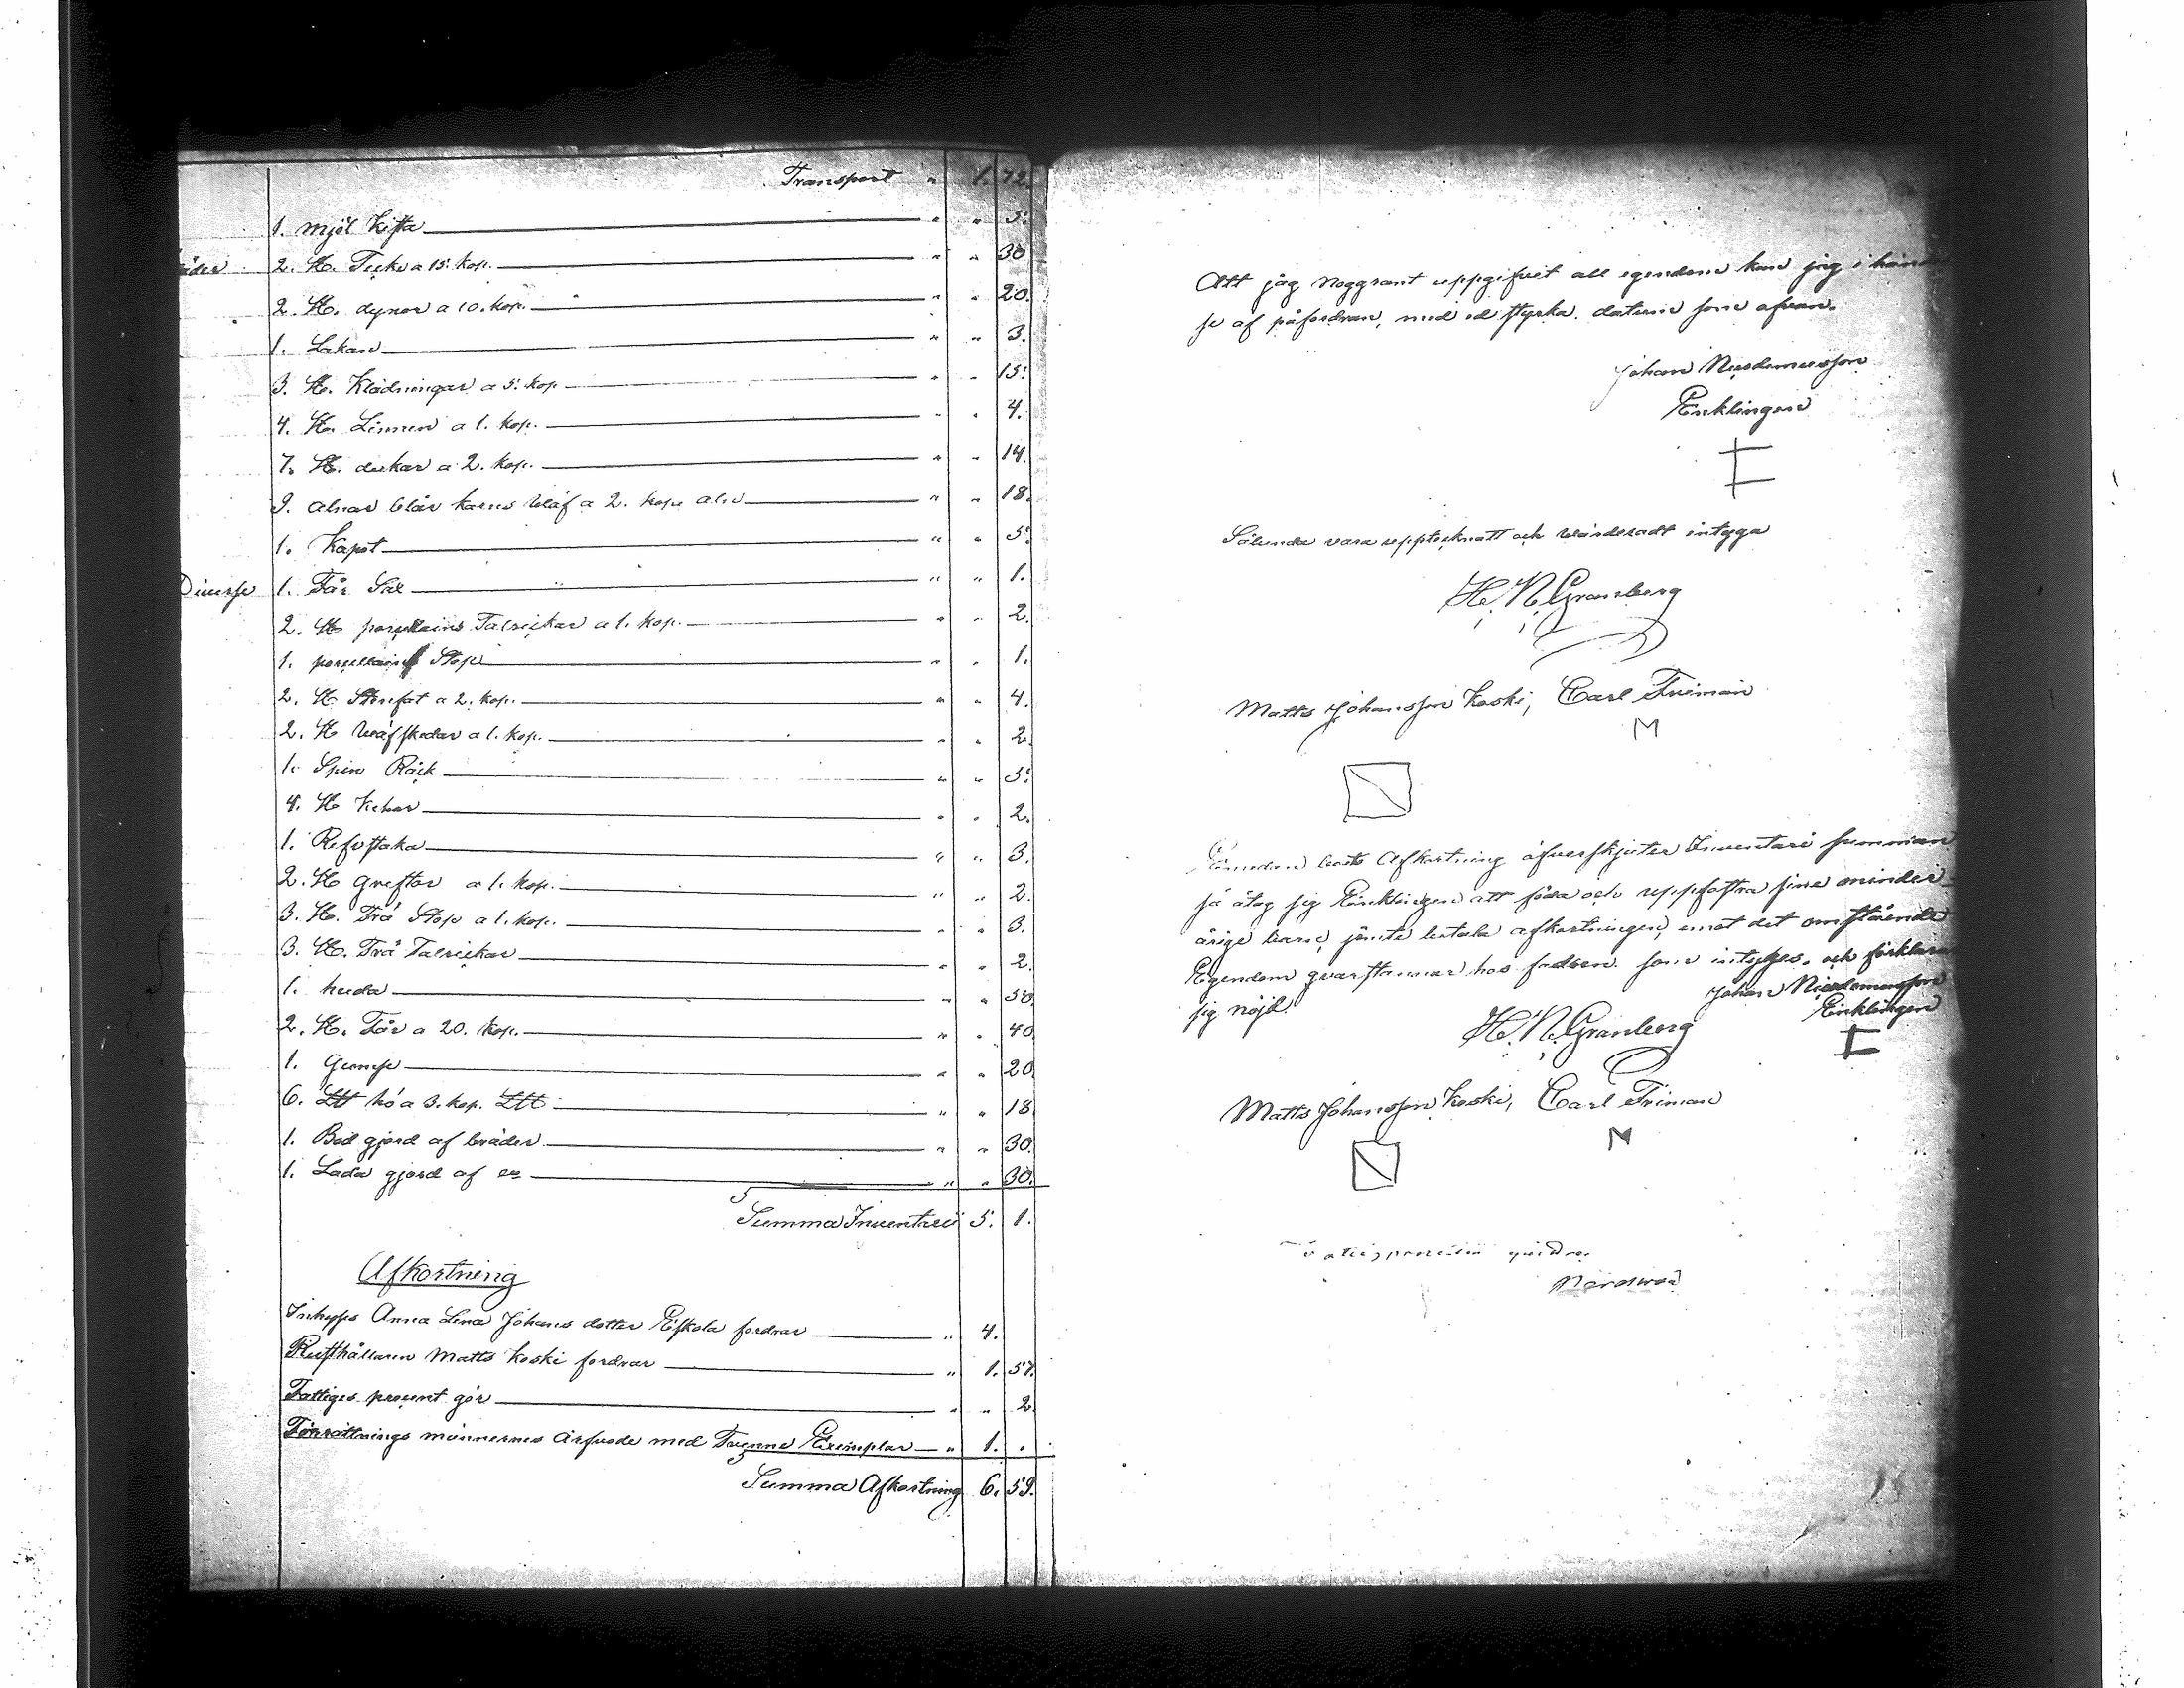 Transport " 1. 72.
1. mjöl Kista " " 5.
äder 2. St. Teckn a 15. kop. " " 30
2. St. dynor a 10. kop. " " 20.
1. Lakan " " 3.
3. St. Klädningar a 5. kop " " 15.
4. St. Linnen a 1. kop. " " 4.
7. St. dukar a 2. kop. " " 14.
9. alnar blår karns Wäf a 2. kop. aln " " 18.
1. Kapot " " 5.
Diverse 1. Får Säl " " 1.
2. St porslains Talrickar a 1. kop. " " 2.
1. porslains Stop " " 1.
2. St Stenfat a 2. kop. " " 4.
2. St Wäfskedar a 1. kop. " " 2.
1. Spin Råck " " 5.
4. St " " 2.
1. " " 3.
2. St greftor a 1. kop. " " 2.
3. St. Trä Stop a 1. kop. " " 3.
3. St. Trä Talrickar " " 2.
1. " " 50.
2. St. Får a 20. kop. " " 40.
1. gumse " " 20.
6. Ltt hö a 3. kop. Ltt " " 18.
1. Bod gjord af bräder " " 30.
1. Lada gjord af " " 30.
Summa Inventarii 5. 1.
Afkortning
Inhyses Anna Lena Johans dotter Eskola fordrar " 4.
Rusthållaren Matts Koski fordrar " 1. 57.
Fattiges procent gör " " 2
Förrättnings männernes Arfvode med Tvenne Exemplar " 1. "
Summa Afkortning 6. 59.
Att jag noggrant uppgifvit all egendom kan jag i hän
se af påfordran, med ed styrka. datum som ofvan.
Johan Nicodemusson
Enklingen
Sålunda vara upptecknatt och Wärderadt intyga
H. N. Granberg
Matts Johansson Koski, Carl Friman
M
boets Afkortning öfverskjuter Inventari summan
så åtog sig Enklingen att föda och uppfostra sine minder
årige barn, jämte betala afkortningen, emot det omstående
Egendom qvarstannar hos fadren. som intyges. och förklara
sig nöjd.
Johan Nicodemusson
Enklingen
H. N. Granberg
Matts Johansson Koski, Carl Friman